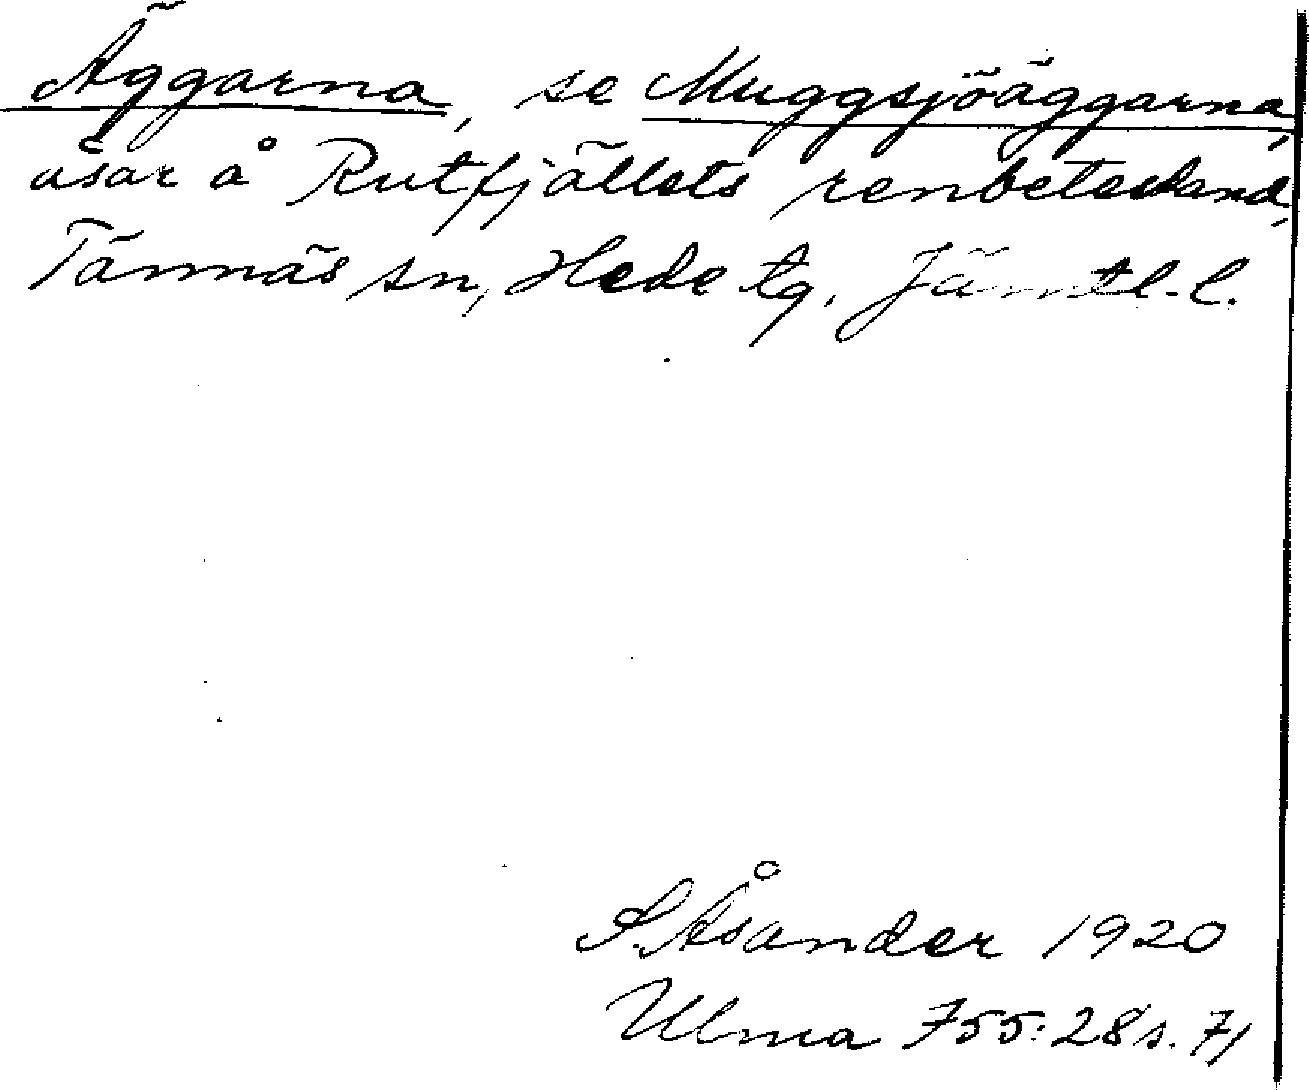 Äggarna, se Muggsjöäggarna,
åsar å Rutfjällets renbetesland,
Tännäs sn, Hede tg, Jämtl. l.
S. Åsander 1920
Ulma 755:28 s. 71